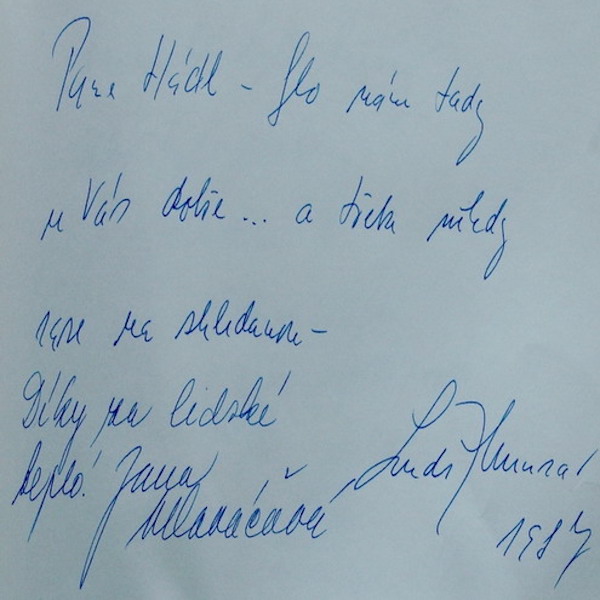 Pane Hádl - šlo nám tady
u Vás dobře... a třeba někdy
zase na shledanou -
Díky za lidské
teplo! Jana
Hlaváčová
Luděk Munzar
1987